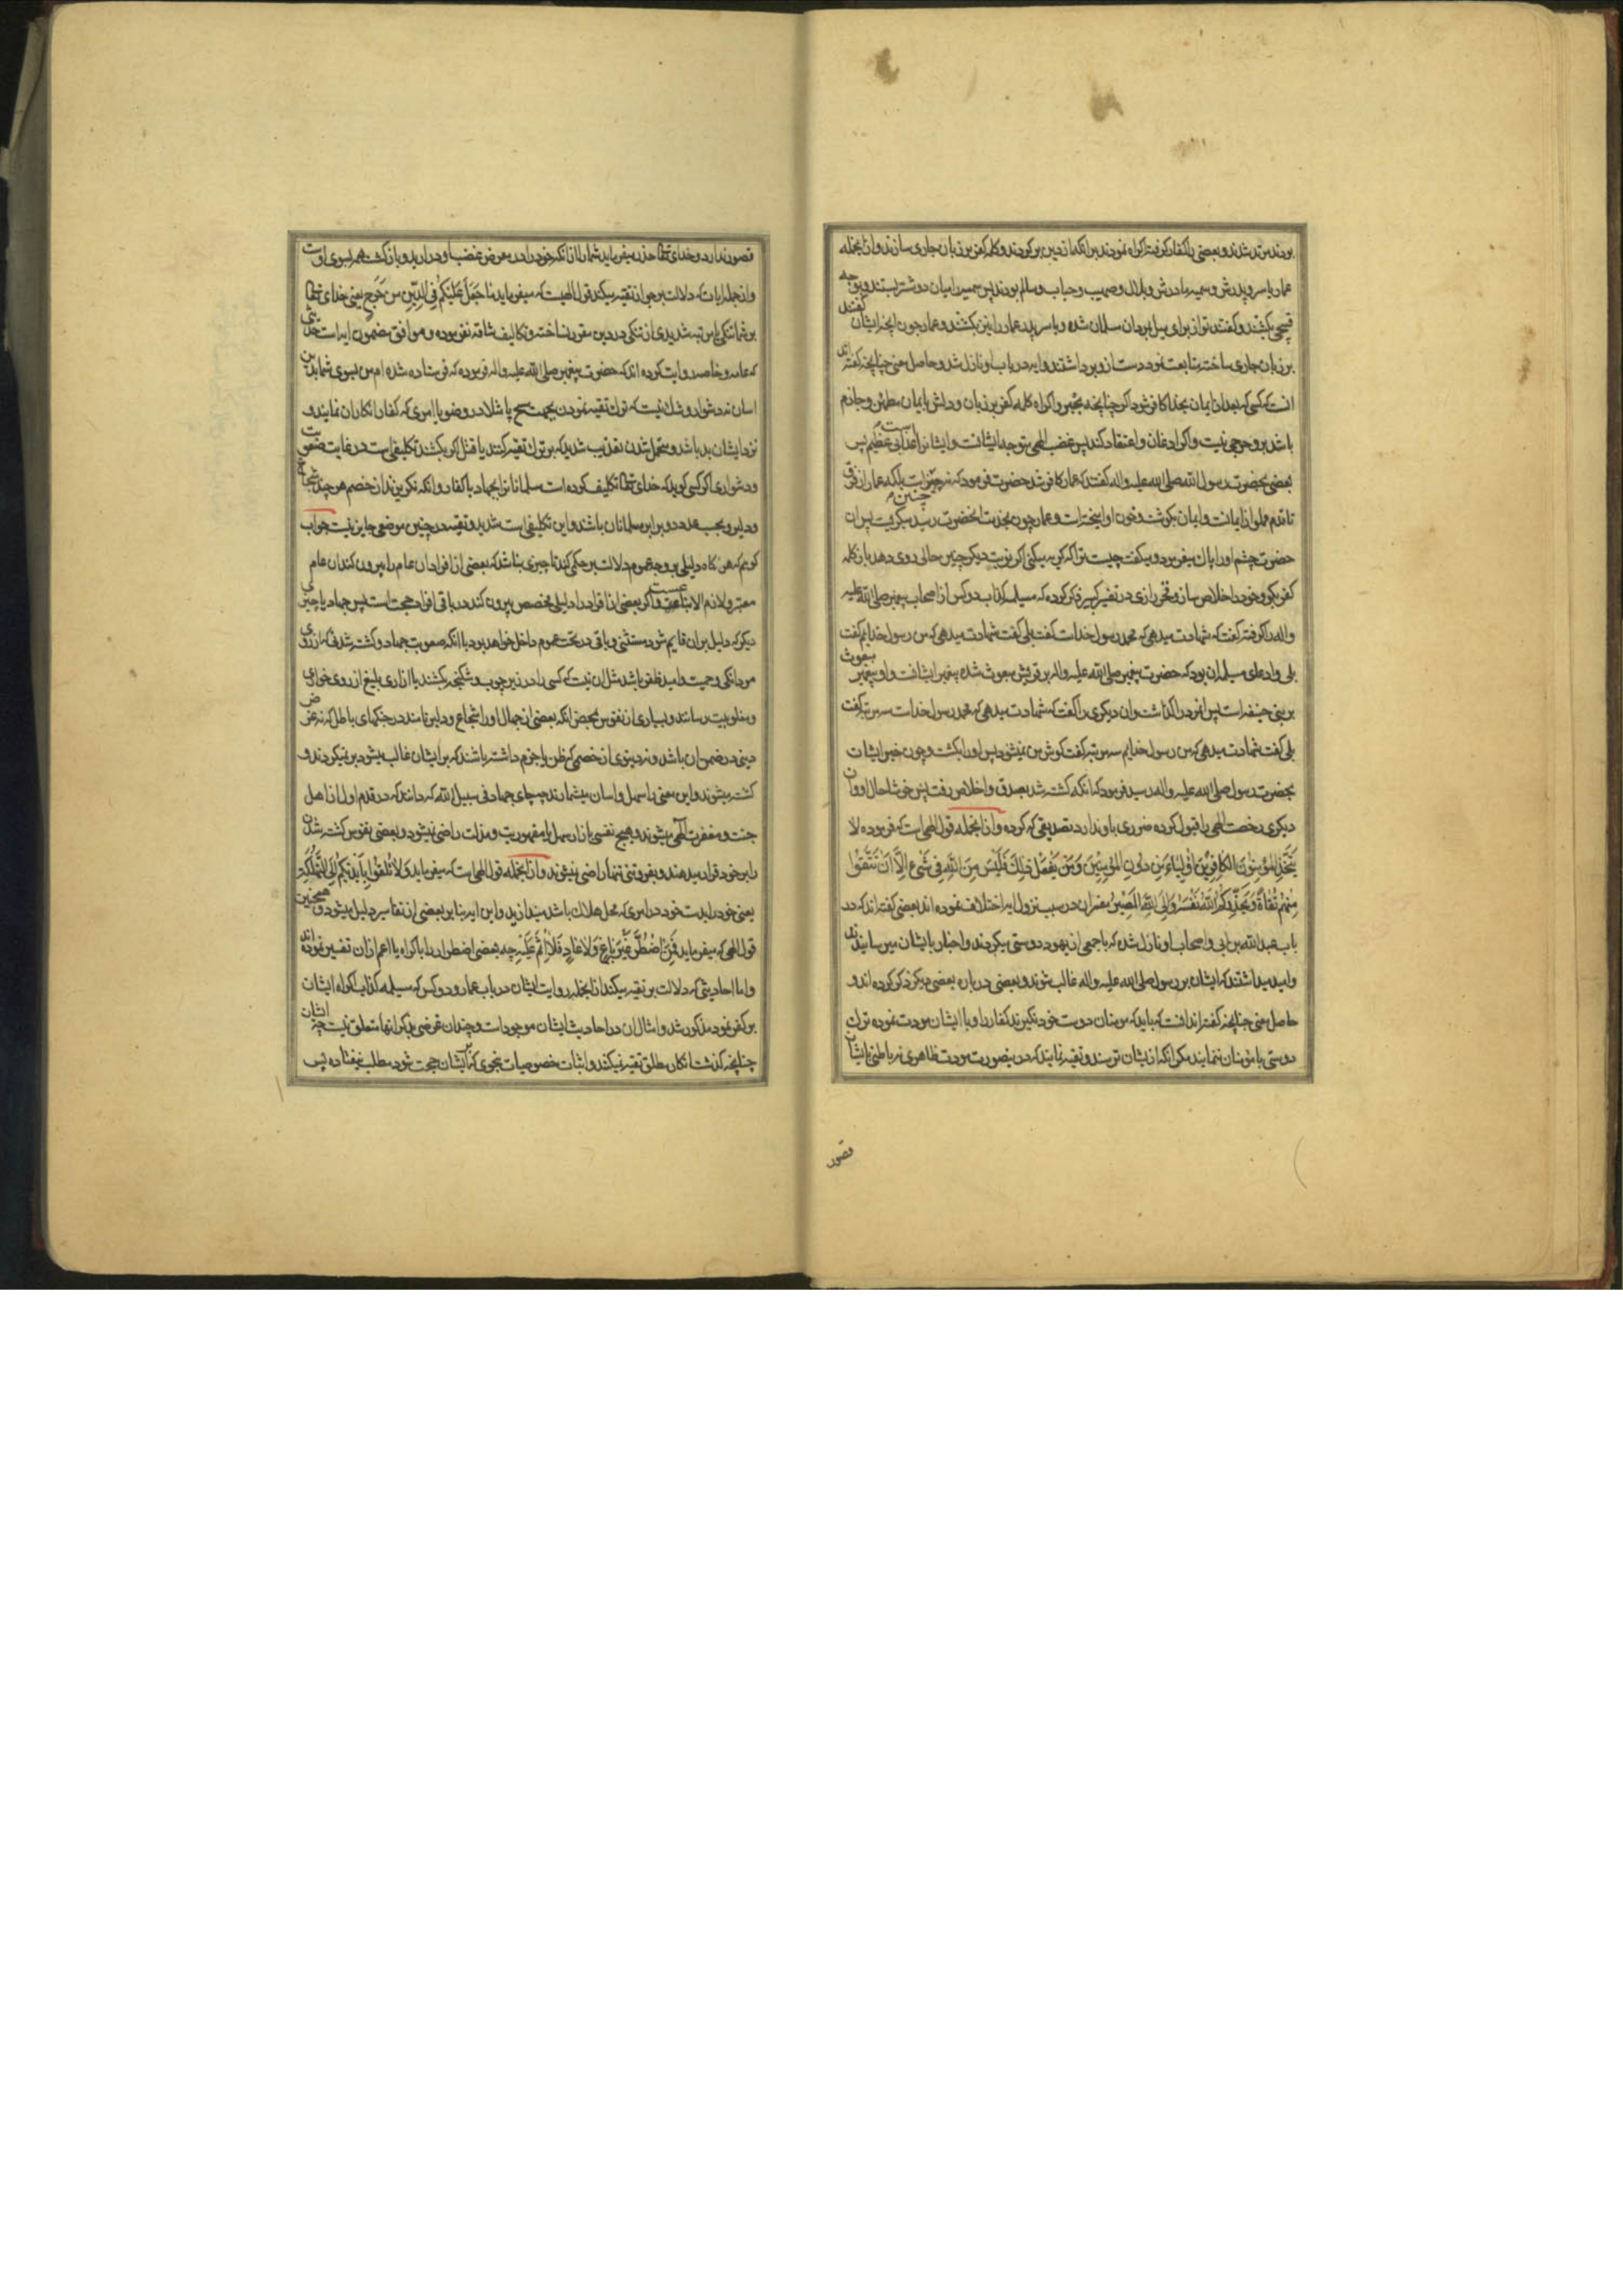 بودند مرتد شدند و بعضی را کفار گرفته اکراه نمودند بر انکه از دین برگردند و کلمه کفر بر زبان جاری سازند و از انجمله
عمار یاسر و پدرش و سمیه مادرش و بلال و صهیب و خباب و سالم بودند پس سمیه را میان دو شتر بستند و بوجه
قبیحی بکشتند و گفتند تو از برای میل بمردان مسلمان شده و یاسر پدر عمار را نیز بکشتند و عمار چون انچه ایشان گفتند
بر زبان جاری ساخت متابعت نمود دست از او برداشتند و ایه در باب او نازل شد و حاصل معنی چنانچه گفته اند
انست که کسی که بعد از ایمان بخدا کافر شود اگر چنانچه بجبر و اکراه کلمه کفر بر زبان و دلش بایمان مطمئن و جازم
باشد بر او حرجی نیست و اگر اذعان و اعتقاد کند پس غضب الهی متوجه ایشانست و ایشانرا عذابی عظیم است پس
بعضی بحضرت رسول الله صلی الله علیه و اله گفتند که عمار کافر شد حضرت فرمود که نه چنین است بلکه عمار از فرق
تا قدم مملو از ایمانست و ایمان بگوشت و خون او امیخته است و عمار چون بخدمت انحضرت رسید میگریست پس ان
حضرت چشم او را پاک میفرمود و میگفت چیست ترا که گریه میکنی اگر نوبت دیگر چنین حالی روی دهد باز کلمه
کفر بگو و خود را خلاص ساز و فخر رازی در تفسیر کبیر ذکر کرده که مسیلمه کذاب دو کس از اصحاب پیغمبر صلی الله علیه
و اله را گرفته گفت که شهادت میدهی که محمد رسول خداست گفت بلی گفت شهادت میدهی که من رسول خدایم گفت
بلی و ادعای مسیلمه ان بود که حضرت پیغمبر صلی الله علیه و اله بر قریش مبعوث شده پیغمبر ایشانست و او پیغمبر مبعوث
بر بنی حنیفه است پس انمرد را گذاشت و ان دیگری را گفت که شهادت میدهی که محمد رسول خداست سه مرتبه گفت
بلی گفت شهادت میدهی که من رسول خدایم سه مرتبه گفت گوش من نمیشنود پس او را بکشت و چون خبر ایشان
بحضرت رسول صلی الله علیه و اله رسید فرمود که انکه کشته شد بصدق و اخلاص رفت پس خوشا حال او و ان
دیگری رخصت الهی را قبول کرده ضرری باو ندارد تصدیقی که کرده و از انجمله قول الهی است که فرموده لا
یَتَّخِذِ المُؤمِنُونَ الکافِرینَ اَولِیاءَ مِن دُونِ المُؤمِنِینَ وَمَن یَفعَل ذلِکَ فَلَیسَ مِنَ اللهِ فِی شَیءٍ اِلّا اَن تَتَّقُوا
مِنهُم تُقاةً وَیُحَذِّرُکُمُ اللهُ نَفسَهُ وَاِلَی اللهِ المَصِیرُ مفسران در سبب نزول ایه اختلاف نموده اند بعضی گفته اند که در
باب عبد الله بن ابی و اصحاب او نازل شده که با جمعی از یهود دوستی میکردند و اخبار بایشان میرسانیدند
و امید میداشتند که ایشان بر رسول صلی الله علیه و اله غالب شوند و بعضی در باره بعضی دیگر ذکر کرده اند و
حاصل معنی چنانچه گفته اند انست که باید که مومنان دوست خود نگیرند کفار را و با ایشان مودت نموده ترک
دوستی با مومنان ننمایند مگر انکه از ایشان ترسند و تقیه نمایند که در ینصورت مودت ظاهری نه باطنی با ایشان
قصور
قصور ندارد و خدای تعالی حذر میفرماید شما را از انکه خود را در معرض غضب او در ارید و بازگشت همه بسوی اوست
و از جمله ایات که دلالت بر جواز تقیه میکند قول الهیست که میفرماید ما جَعَلَ عَلَیکُم فِی الدِّینِ مِن حَرَجٍ یعنی خدای تعالی
بر شما تنگی باین مرتبه شدیدی از تنگی در دین مقرر نساخته و تکالیف شاقه نفرموده و موافق مضمون ایه است حدیثی
که عامه و خاصه روایت کرده اند که حضرت پیغمبر صلی الله علیه و اله فرموده که فرستاده شده ام من بسوی شما بدین
اسان نه دشوار و شک نیست که ترک تقیه نمودن بجهت مسح پا مثلا در وضو یا امری که کفار انکار ان نمایند و
نزد ایشان بد باشد و متحمل شدن تعذیب شدید که بر ترک تقیه کنند یا قتل اگر بکشند تکلیفی است در غایت صعوبت
و دشواری اگر کسی گوید که خدای تعالی تکلیف کرده است مسلمانانرا بجهاد با کفار و انکه نگریزند از خصم هر چند شجاع
و دلیر و بحسب عدد دو برابر مسلمانان باشند و این تکلیفی است شدید و تقیه در چنین موضعی جایز نیست جواب
گوییم که هر گاه دلیلی بر وجه عموم دلالت بر حکمی کند تا چیزی بناشد که بعضی از افراد ان عام را بیرون کند ان عام
معتبر و لازم الاتباعست و اگر بعضی از افراد را دلیلی مخصص بیرون کند در باقی افراد حجت است پس جهاد یا چیزی
دیگر که دلیل بر ان قایم شود مستثنی و باقی در تحت عموم داخل خواهد بود با انکه صعوبت جهاد و کشته شدنی که از روی
مردانگی و حمیت و امید ظفر باشد مثل ان نیست که کسی را در زیر چوب و شکنجه بکشند یا ازاری بلیغ از روی خواری
و مغلوبیت رسانند و بسیاری از نفوس بمحض انکه بعضی از جهال او را شجاع و دلیر نامند در جنگهای باطل که نه غرض
دینی در ضمن ان باشد و نه دنیوی از خصمی که ظن یا جزم داشته باشند که بر ایشان غالب میشود بر نمیگردند و
کشته میشوند و این معنی را سهل و اسان میشمارند چه جای جهاد فی سبیل الله که دانند که در قدم اول از اهل
جنت و مغفرت الهی میشوند و هیچ نفسی بازار سهل با مقهوریت و مذلت راضی نمیشود و بعضی نفوس کشته شدن
را بر خود قرار میدهند و بفروتنی تنها راضی نمیشوند و از انجمله قول الهی است که میفرماید وَلا تُلقُوا بِاَیدِیکُم اِلَی التَّهلُکَةِ
یعنی خود را بدست خود در امری که محل هلاک باشد میندازید و این ایه بنا بر بعضی از تفاسیر دلیل میشود و همچنین
قول الهی که میفرماید فَمَنِ اضطُرَّ غَیرَ باغٍ وَلا عادٍ فَلا اِثمَ عَلَیهِ چه بعضی اضطرار را باکراه یا اعم از ان تفسیر نموده اند
و اما احادیثی که دلالت بر تقیه میکند از انجمله روایت ایشان در باب عمار و دو کس که مسیلمه کذاب اکراه ایشان
بر کفر نمود مذکور شد و امثال ان در احادیث ایشان موجود است و چندان غرضی بذکر انها متعلق نیست چه ایشان
چنانچه گذشت انکار مطلق تقیه نمیکنند و اثبات خصوصیات بنحوی که بر ایشان حجت شود مطلب نیفتاده پس